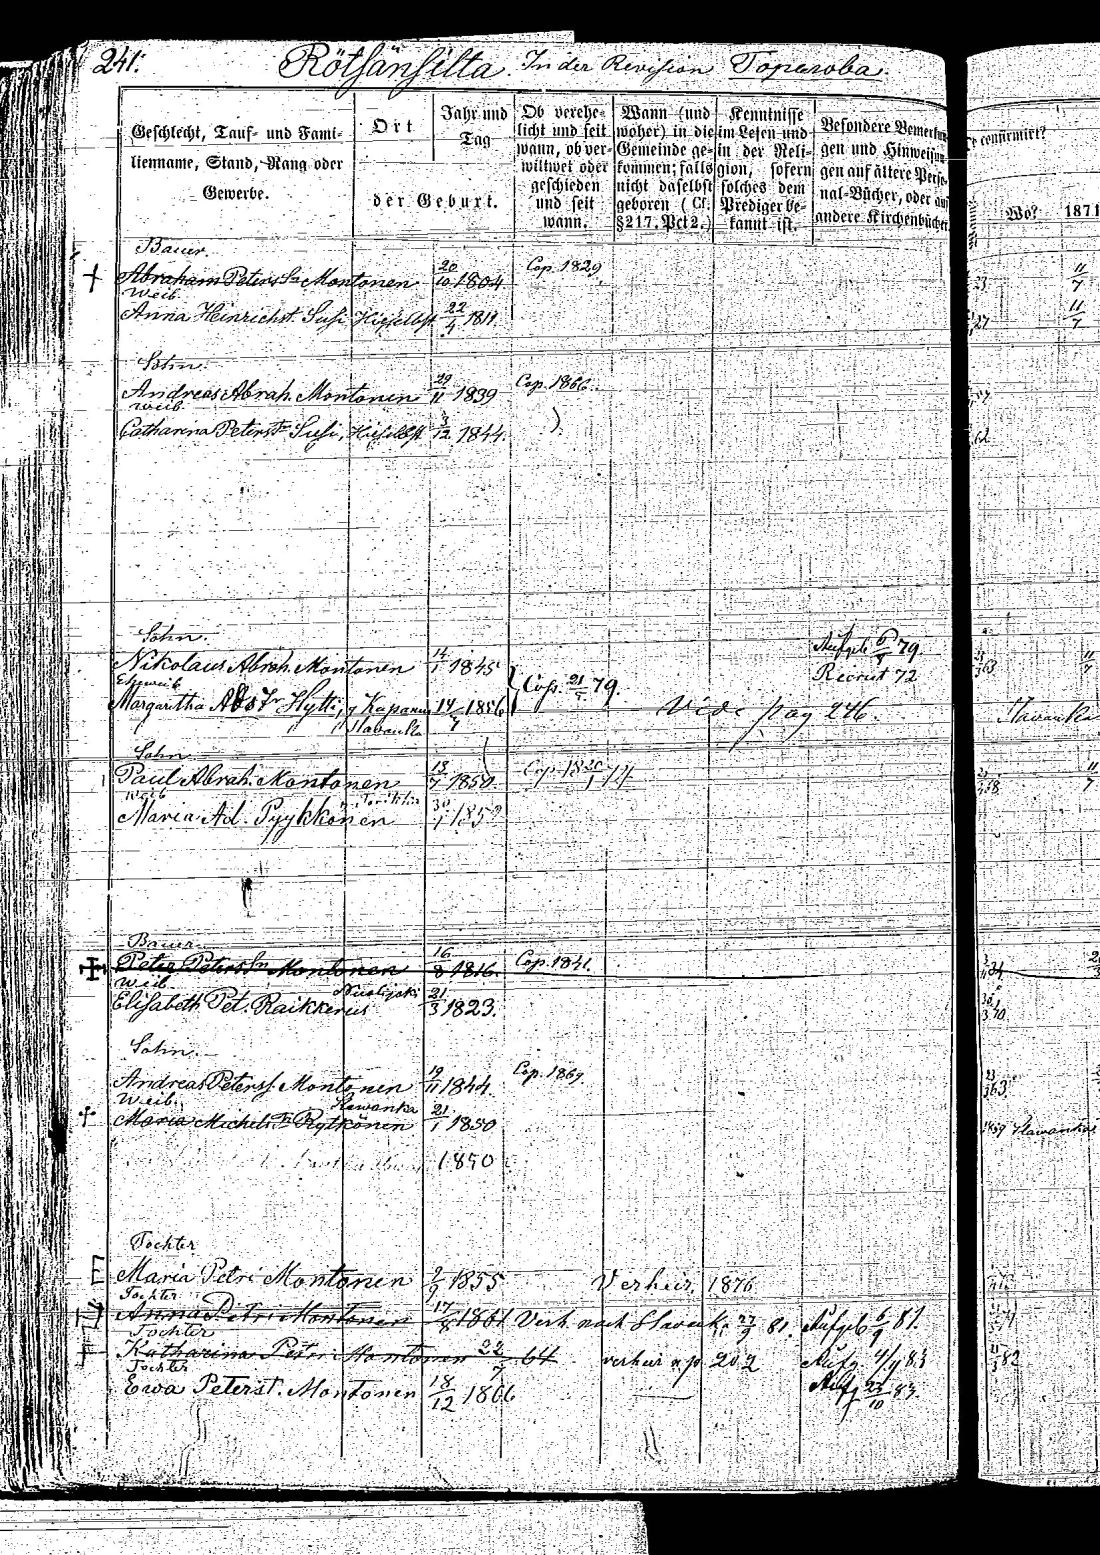 241. Rötsänsilta. In der Revision Toparova.
Geschlecht, Tauf- und Fami-
lienname, Stand, Rang oder
Gewerbe.
Ort
der Geburt.
Jahr und
Tag
Ob verehe-
licht und seit
wann, ob ver-
wittwet oder
geschieden
und seit
wann.
Wann (und
woher) in die
Gemeinde ge-
kommen; falls
nicht daselbst
geboren (Cf.
§217. Pct2.)
Kenntnisse
im Lesen und
in der Reli-
gion, sofern
solches dem
Prediger be-
kannt ist.
Besondere Bemerkun-
gen und Hinweisun-
gen auf ältere Perso-
nal-Bücher, oder auf
andere Kirchenbücher.
confirmirt?
Wo? 1871
Bauer.
Abraham Peters Sn Montonen 20/10 1804 Cop. 1829 11/7
Weib
Anna Heinrichst. Susi 22/4 1811. 27 11/7
Sohn.
Andreas Abrah. Montonen 29/11 1839 Cop. 1866.
Weib.
Catharina Peterst. Susi, 3/12 1844. 62
Sohn.
Nikolaus Abrah. Montonen 14/1 1845 Aufgeb 6/5 79. 63 11/7
Recrut 72
Eheweib
Margaretha Abs Tr Hytti, Kaparus 14/7 1856 Cop. 21/5 79. Vide pag 246. Slavanka
Slavanka
Sohn
Paul Abrah. Montonen 13/7 1850. Cop. 11/7
Weib
Maria Ad. Pyykkönen 30/1 185
Bauer
Peter Peters Sn Montonen 16/8 1816. Cop. 1841.
Weib.
Elisabeth Pet. Raikkerus 21/3 1823.
Sohn.
Andreas Peterss. Montonen 19/11 1844. Cop. 1869 63.
Weib. Slawanka
Maria Michels Tr Rytkönen 21/1 1850 Slawanka
1850
Tochter
Maria Petri Montonen 2/9 1855 Verheir. 1876
Tochter
Anna Petri Montonen 17/8 1861 Verh. nach Slavank. 27/9 81. Aufgeb 6/9 81.
Tochter
Katharina Petri Montonen 22/7 64 verheir n. p. 202 Aufg. 4/9 83 82
Tochter
Ewa Peterst. Montonen 18/12 1866 Aufg 23/10 83.